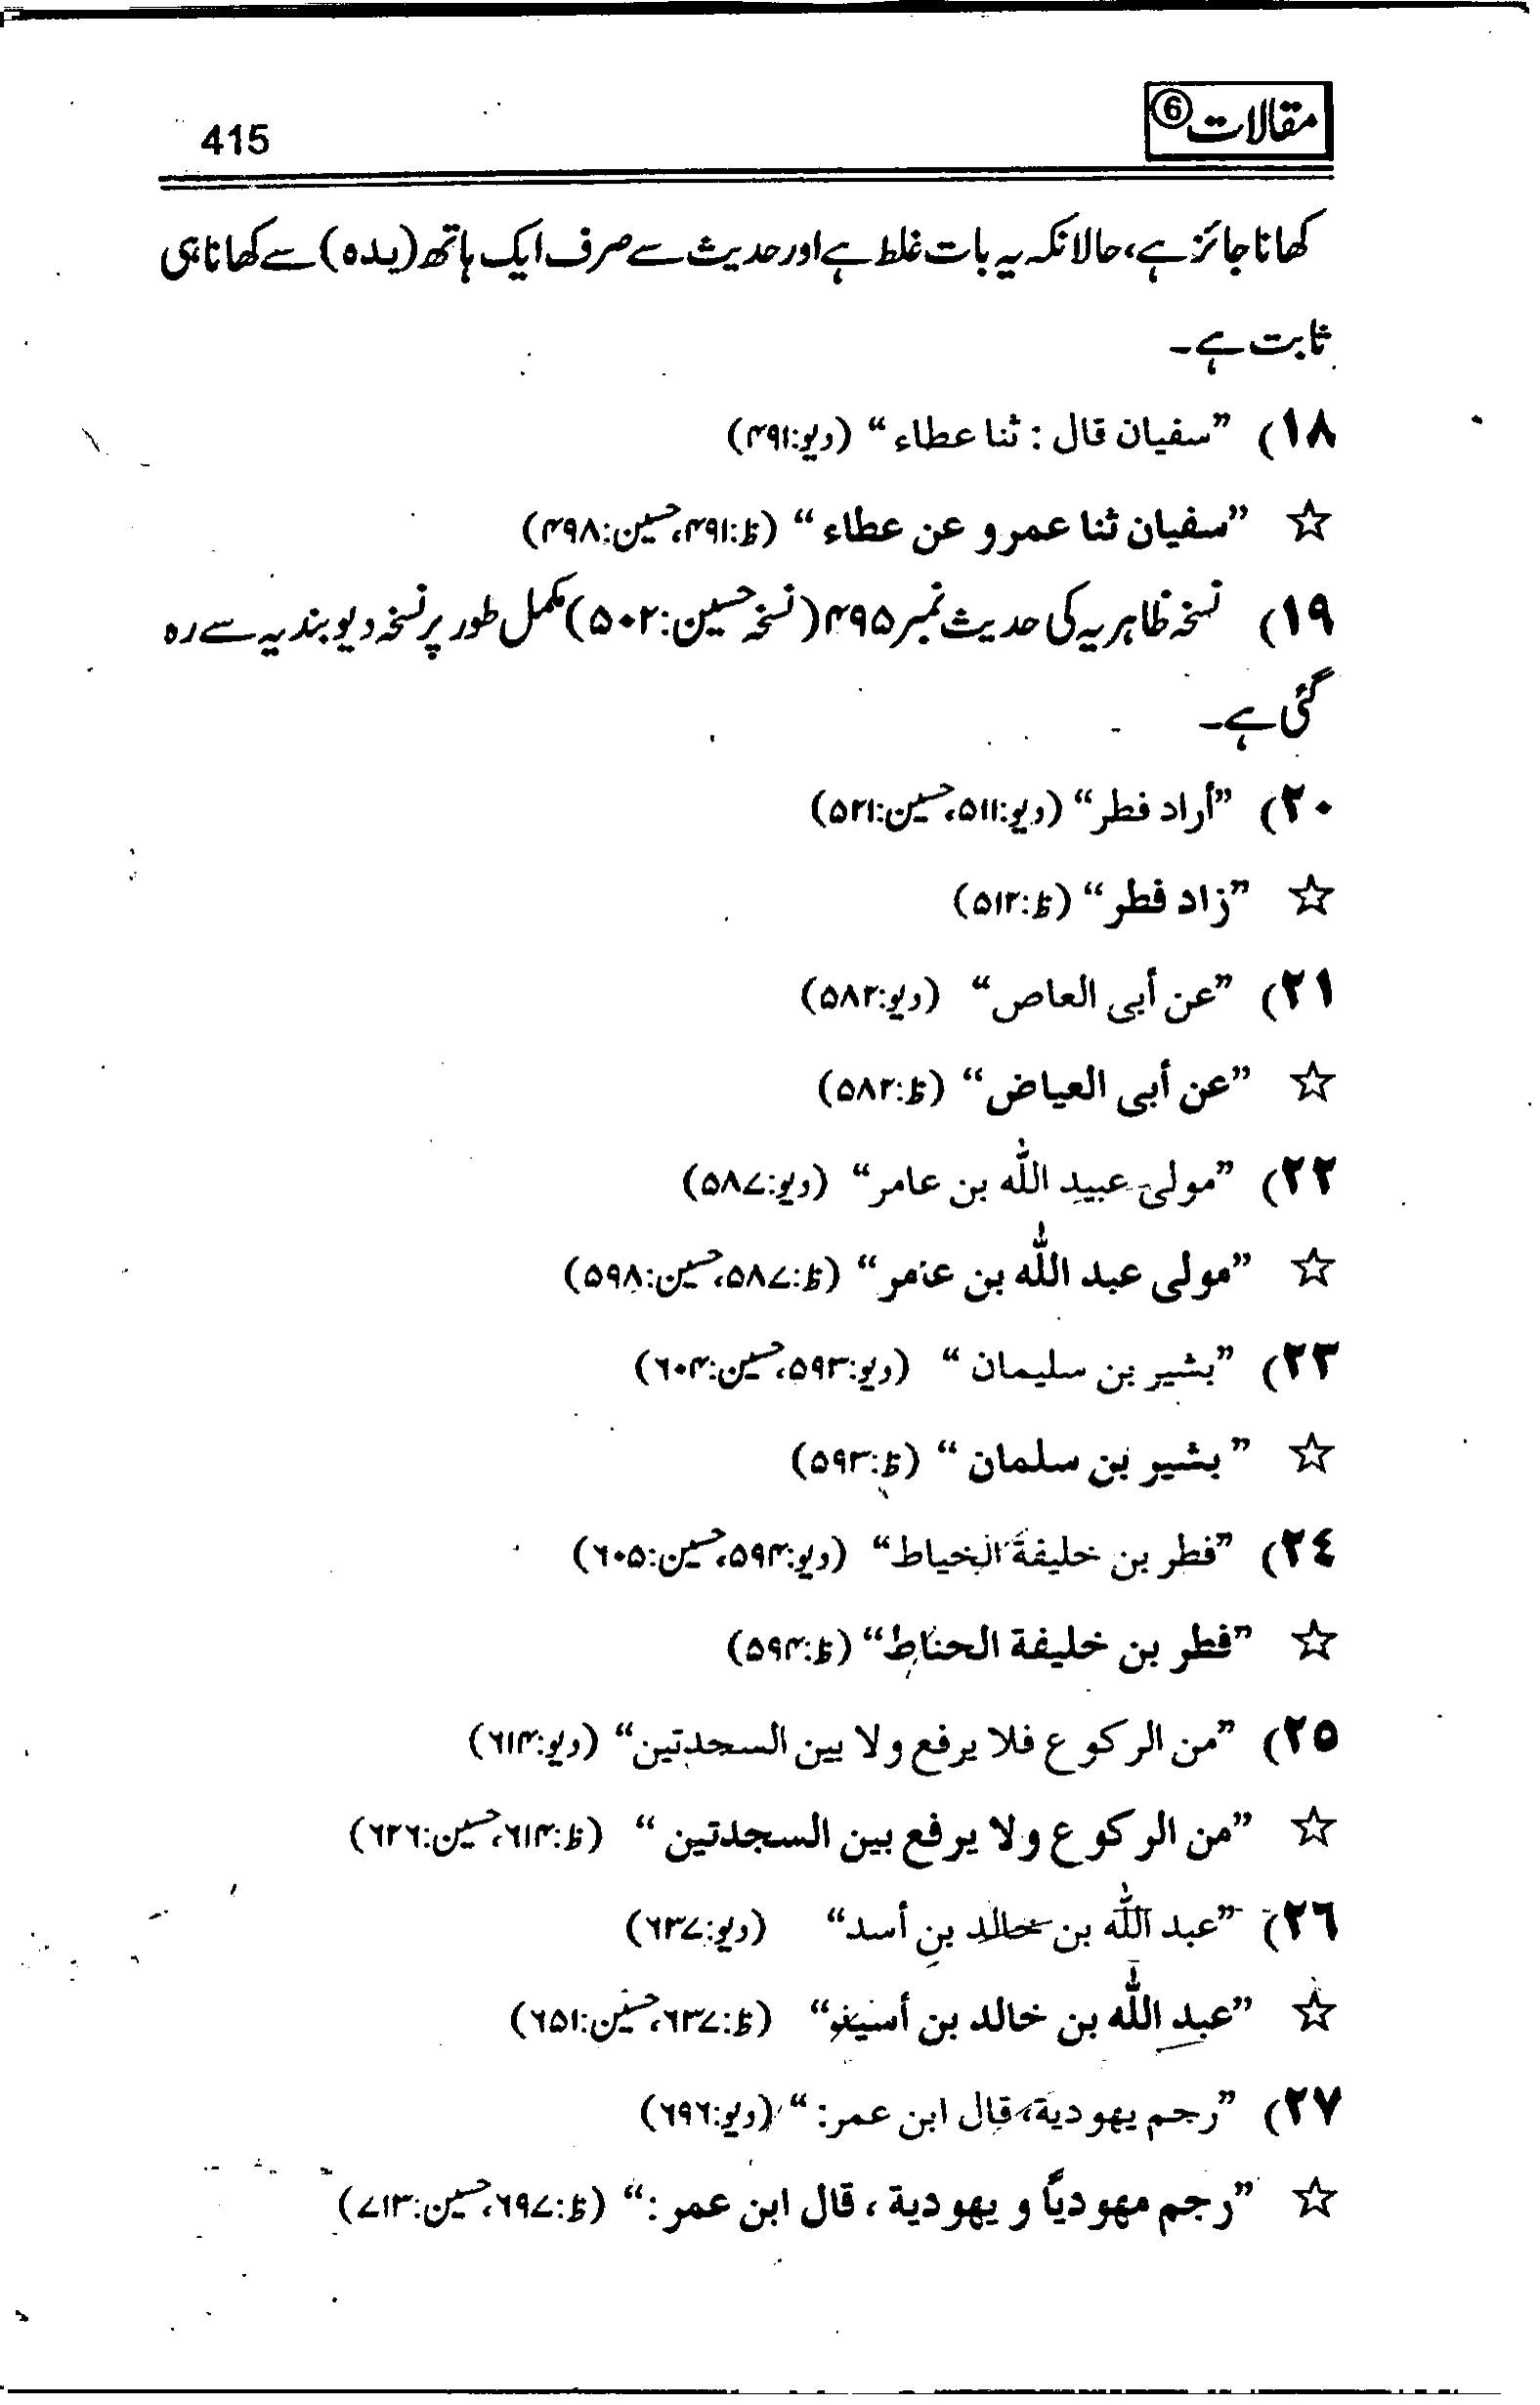 مقالات ⑥
415
کھانا جائز ہے، حالانکہ یہ بات غلط ہے اور حدیث سے صرف ایک ہاتھ (یدہ) سے کھانا ہی
ثابت ہے۔
۱۸) ”سفیان قال : ثنا عطاء“ (دیو:۴۹۱)
☆ ”سفیان ثنا عمرو عن عطاء“ (ظ:۴۹۱، حسین:۴۹۸)
۱۹) نسخہ ظاہریہ کی حدیث نمبر ۴۹۵ (نسخہ حسین:۵۰۲) مکمل طور پر نسخہ دیوبندیہ سے رہ
گئی ہے۔
۲۰) ”أراد فطر“ (دیو:۵۱۱، حسین:۵۲۱)
☆ ”زاد فطر“ (ظ:۵۱۲)
۲۱) ”عن أبی العاص“ (دیو:۵۸۲)
☆ ”عن أبی العیاض“ (ظ:۵۸۲)
۲۲) ”مولی عبید اللّٰہ بن عامر“ (دیو:۵۸۷)
☆ ”مولی عبد اللّٰہ بن عامر“ (ظ:۵۸۷، حسین:۵۹۸)
۲۳) ”بشیر بن سلیمان“ (دیو:۵۹۳، حسین:۶۰۴)
☆ ”بشیر بن سلمان“ (ظ:۵۹۳)
۲٤) ”فطر بن خلیفة الخیاط“ (دیو:۵۹۴، حسین:۶۰۵)
☆ ”فطر بن خلیفة الحناط“ (ظ:۵۹۴)
۲۵) ”من الرکوع فلا یرفع ولا بین السجدتین“ (دیو:۶۱۴)
☆ ”من الرکوع ولا یرفع بین السجدتین“ (ظ:۶۱۴، حسین:۶۲۶)
۲٦) ”عبد اللّٰہ بن خالد بن أسد“ (دیو:۶۳۷)
☆ ”عبد اللّٰہ بن خالد بن أسید“ (ظ:۶۳۷، حسین:۶۵۱)
۲۷) ”رجم یهودیة، قال ابن عمر:“ (دیو:۶۹۶)
☆ ”رجم یهودیاً و یهودیة ، قال ابن عمر :“ (ظ:۶۹۷، حسین:۷۱۳)